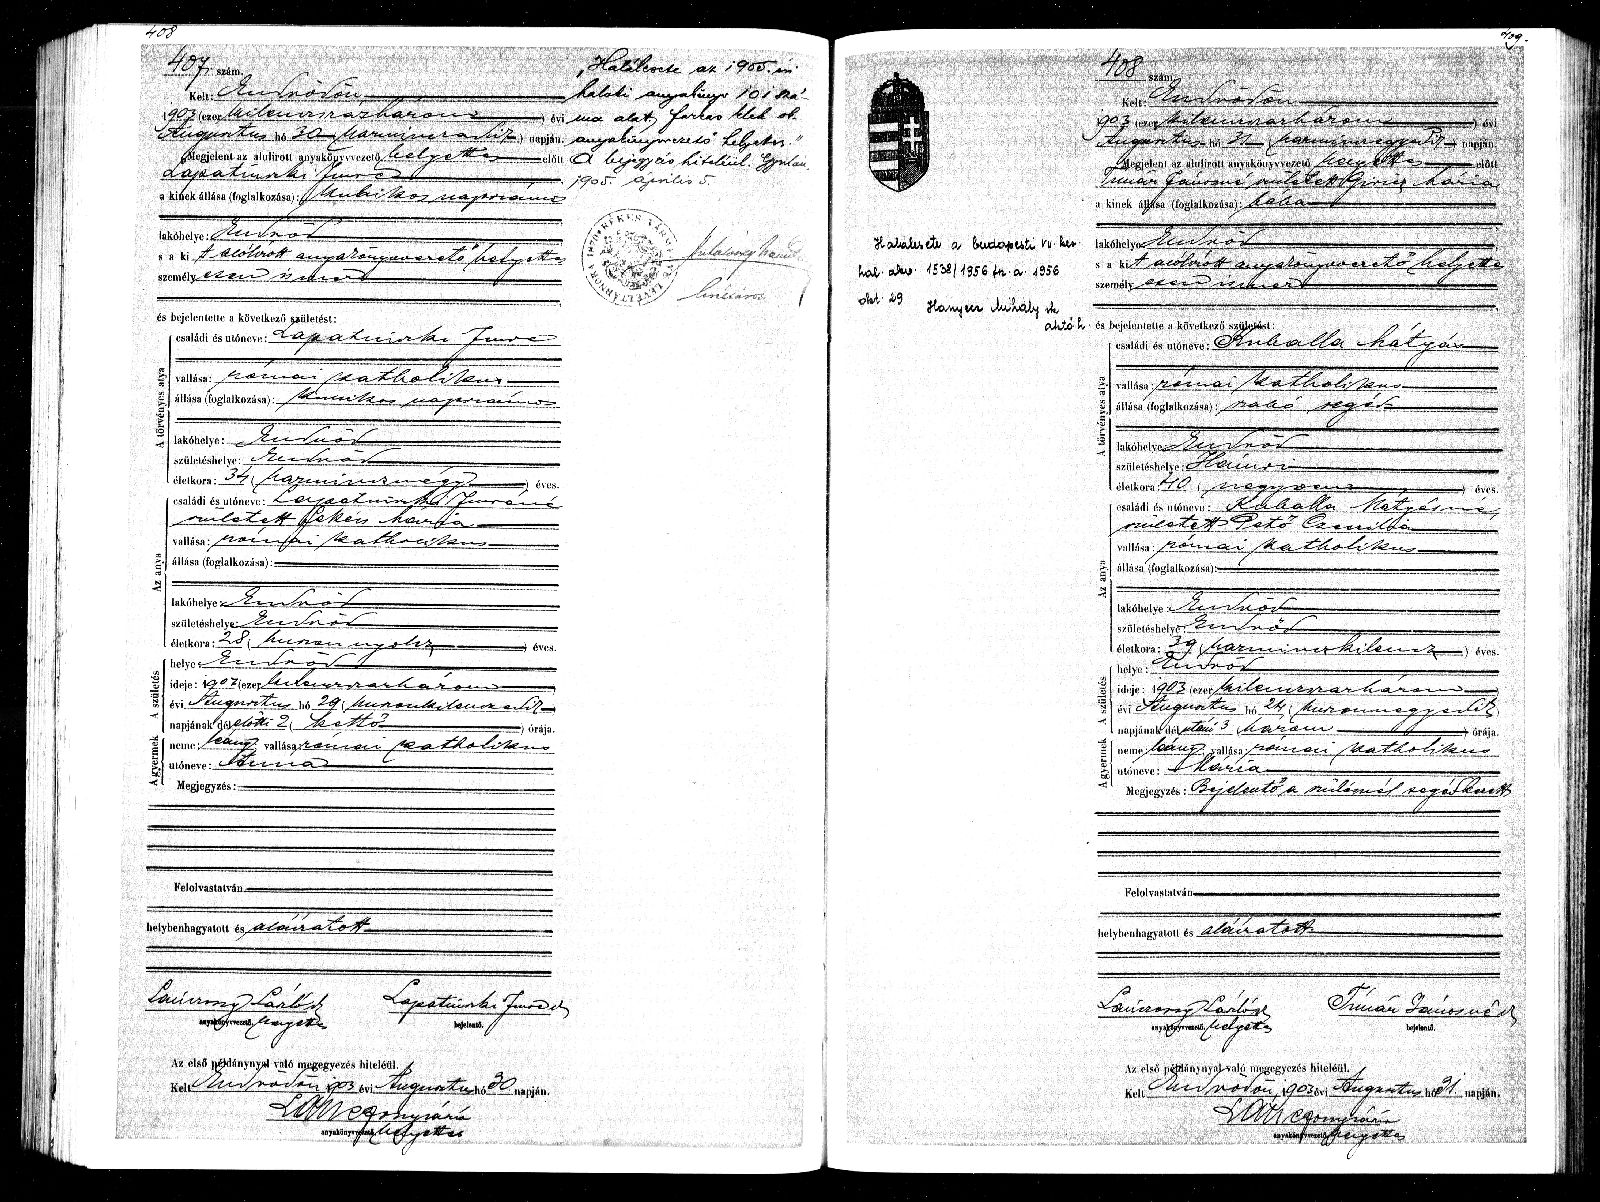 408
407. szám.
Kelt: Endrődön
1903 (ezer kilenczszázhárom ) évi
Augusztus hó 30 (harminczadik ) napján.
Megjelent az alulirott anyakönyvvezető helyettes előtt
Lapatinszki Imre
a kinek állása (foglalkozása): kubikos napszámos
lakóhelye: Endrőd
s a ki t alólirott anyakönyvvezető helyettes
személy esen ismer
és bejelentette a következő születést:
A törvényes atya
családi és utóneve: Lapatinszki Imre
vallása: római katholikus
állása (foglalkozása): kubikos napszámos
lakóhelye: Endrőd
születéshelye: Endrőd
életkora: 34 (harmincznégy ) éves.
Az anya
családi és utóneve: Lapatinszki Imréné
született Mária
vallása: római katholikus
állása (foglalkozása):
lakóhelye: Endrőd
születéshelye: Endrőd
életkora: 28 (huszonnyolcz ) éves.
A születés
helye: Endrőd
ideje: 1903 (ezer kilenczszázhárom )
évi Augusztus hó 29 (huszonkilenczedik )
napjának délelőtti 2 (kettő ) órája.
A gyermek
neme: leány vallása: római katholikus
utóneve: Anna
Megjegyzés:
Felolvastatván
helybenhagyatott és aláiratott
Lánczony László Lapatinszki Imre
anyakönyvvezető helyettes bejelentő.
Az első példánynyal való megegyezés hiteléül.
Kelt Endrődön 1903 évi Augusztus hó 30 napján.
anyakönyvvezető helyettes
„Halálesete az 1905. évi
halotti anyakönyv 101 szá-
ma alatt, Farkas Elek sk
anyakönyvvezető helyettes.”
A bejegyzés hiteléül. Gyulán,
1905. április 5.
BÉKÉS VÁRM. LEVÉLTÁRNOKA 1870
levéltáros
409.
408 szám.
Kelt: Endrődön
1903 (ezer kilenczszázhárom ) évi
Augusztus hó 31 (harminczegyedik ) napján.
Megjelent az alulirott anyakönyvvezető helyettes előtt
Timár Jánosné született Giricz Mária
a kinek állása (foglalkozása): bába
lakóhelye: Endrőd
s a ki t alólirott anyakönyvvezető helyettes
személy esen ismer
és bejelentette a következő születést:
A törvényes atya
családi és utóneve: Kuballa Mátyás
vallása: római katholikus
állása (foglalkozása): szabó segéd
lakóhelye: Endrőd
születéshelye:
életkora: 40 (negyven ) éves.
Az anya
családi és utóneve: Kuballa Mátyásné,
született Pető Czeczilia
vallása: római katholikus
állása (foglalkozása):
lakóhelye: Endrőd
születéshelye: Endrőd
életkora: 39 (harminczkilencz ) éves.
A születés
helye: Endrőd
ideje: 1903 (ezer kilenczszázhárom )
évi Augusztus hó 24 (huszonnegyedik )
napjának dél utáni 3 három ) órája.
A gyermek
neme: leány vallása: római katholikus
utóneve: Mária
Megjegyzés: Bejelentő a szülésnél segédkezett
Felolvastatván
helybenhagyatott és aláiratott
Lánczony László Timár Jánosné
anyakönyvvezető helyettes bejelentő.
Az első példánynyal való megegyezés hiteléül.
Kelt Endrődön 1903 évi Augusztus hó 31. napján.
anyakönyvvezető helyettes
Halálesete a budapesti VII. ker
hal. akv. 1538/1956 fsz. a. 1956
okt. 29 Hanyecz Mihály vk
aktó h.